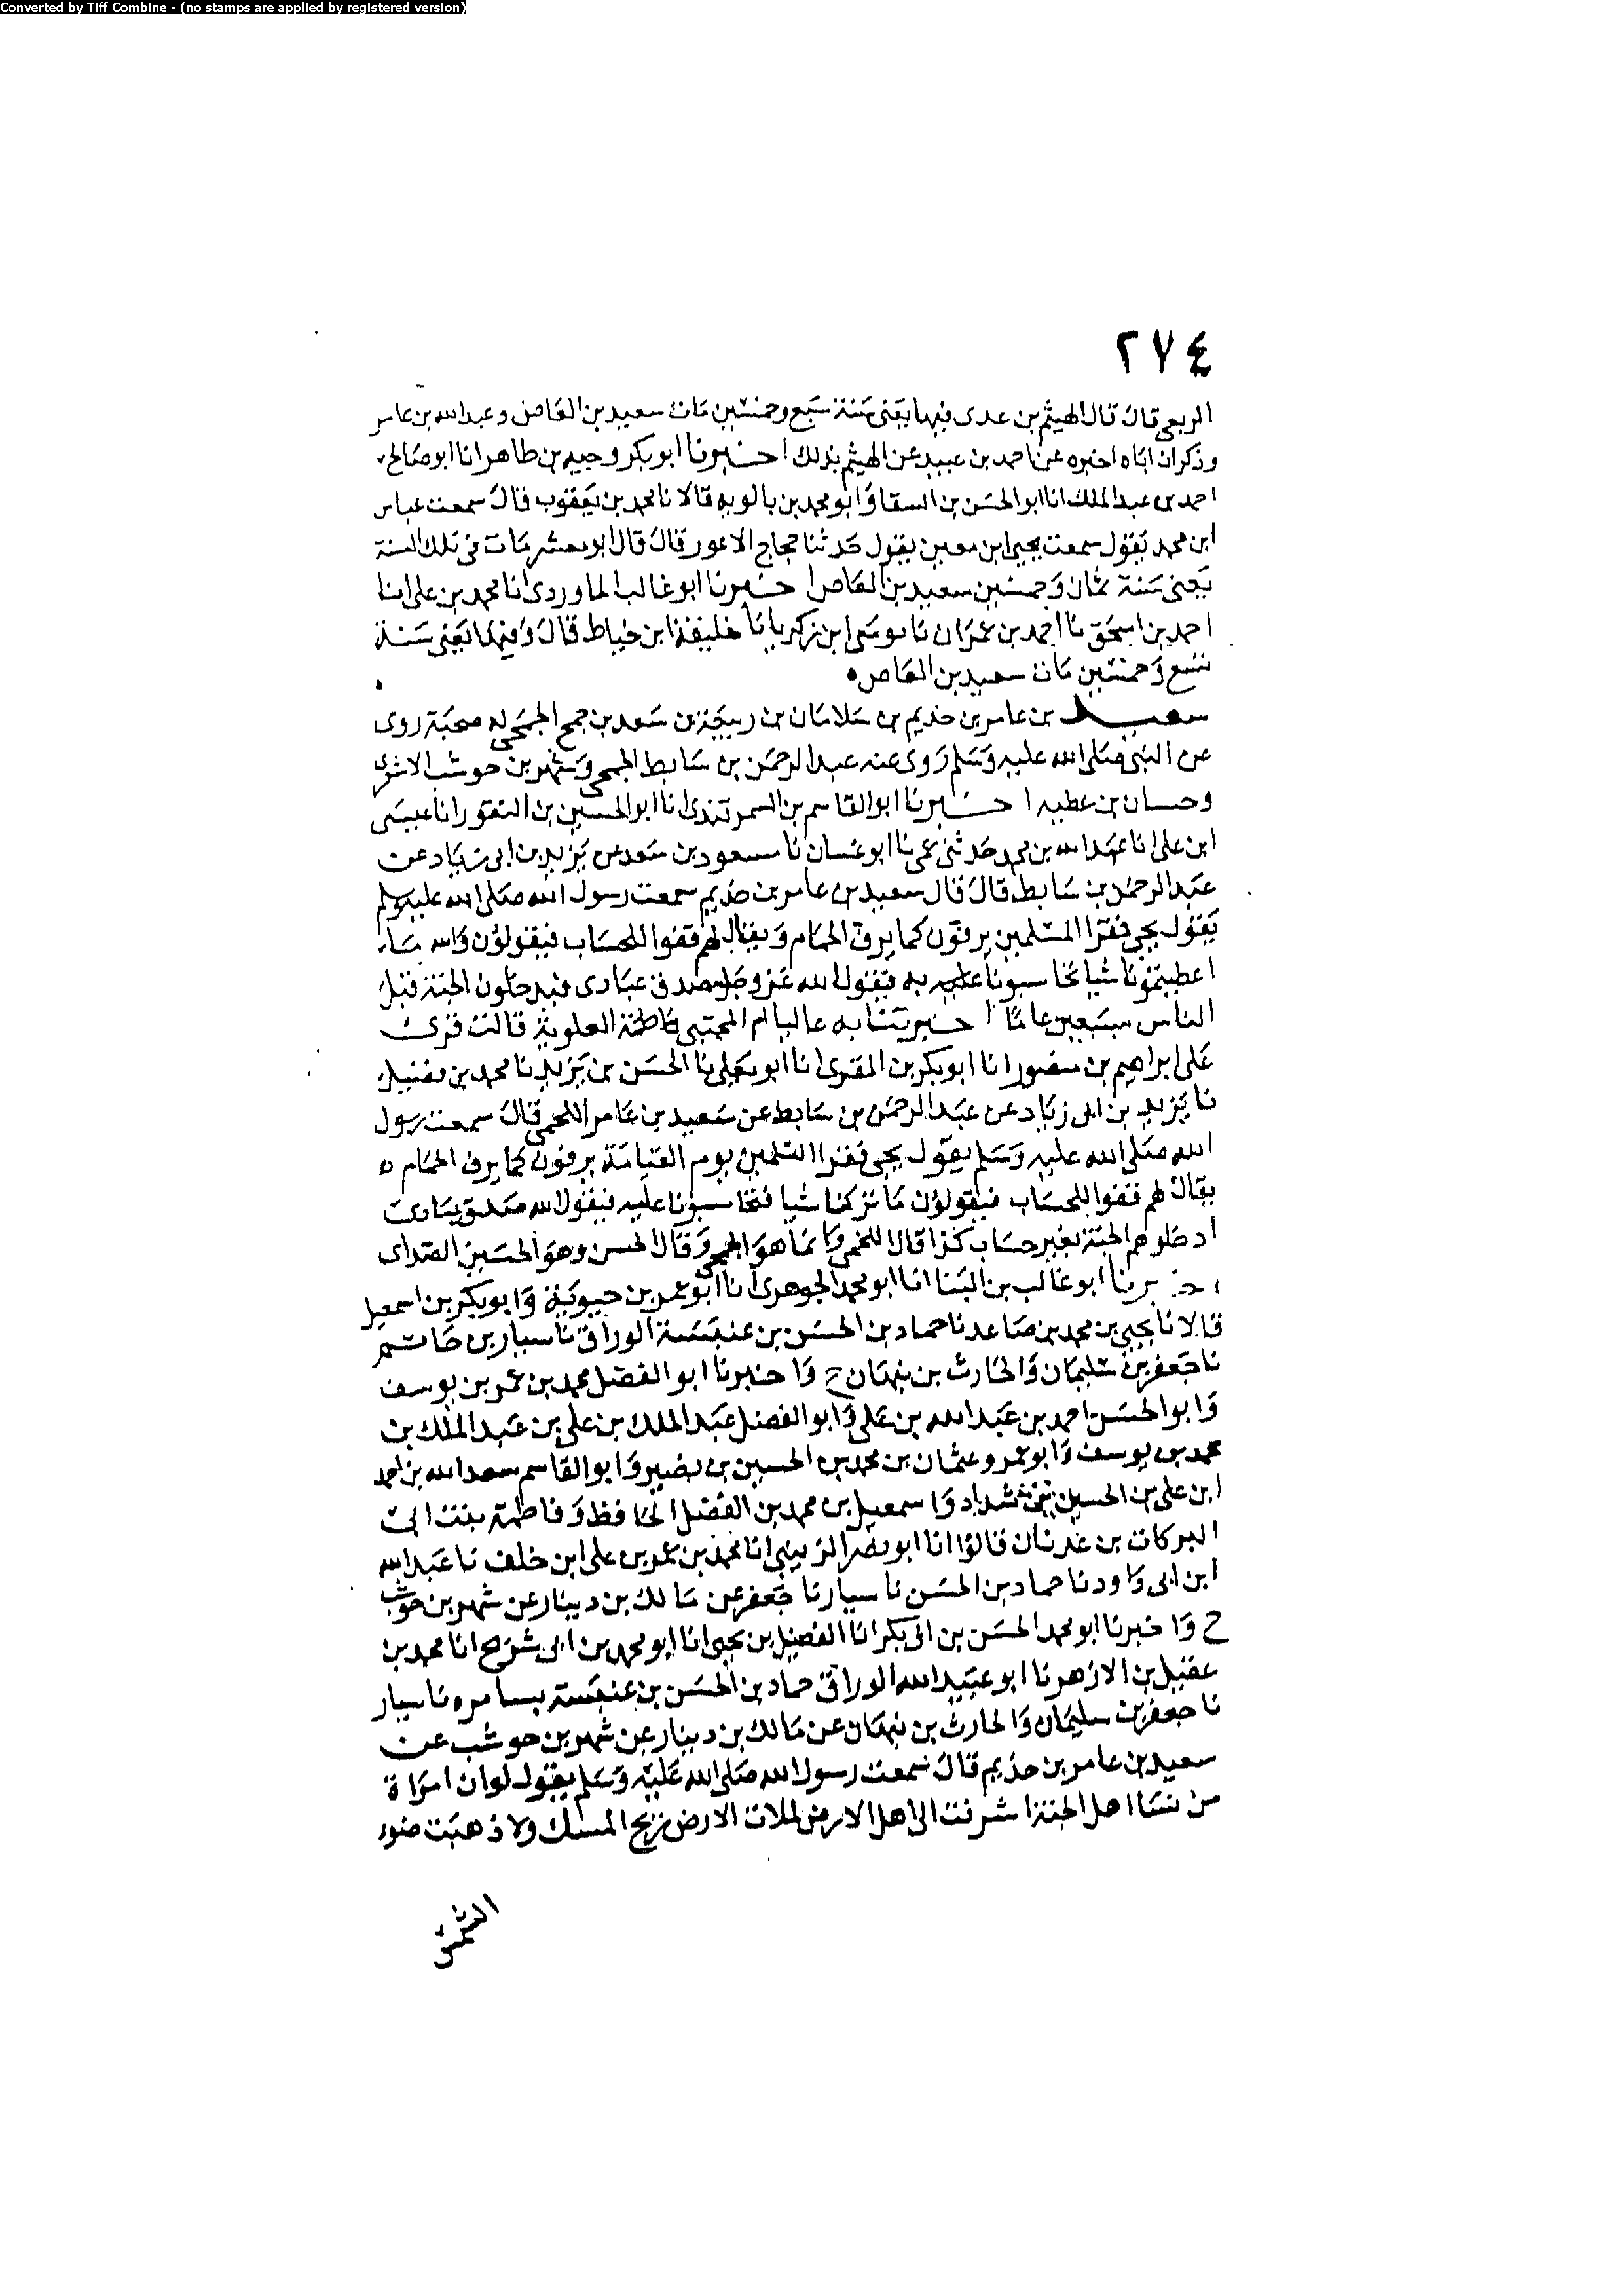 Converted by Tiff Combine - (no stamps are applied by registered version)
٢٧٤
الربعي قال قال الهيثم بن عدى فيها يعنى سنة سبع وخمسين مات سعيد بن العاص وعبدالله بن عامر
وذكر ان اباه اخبره عن احمد بن عبيد عن الهيثم بذلك اخبرنا ابو بكر وجيه بن طاهر انا ابو صالح
احمد بن عبد الملك انا ابو الحسن بن السقا وابو محمد بن بالويه قالا نا محمد بن يعقوب قال سمعت عباس
ابن محمد يقول سمعت يحيى ابن معين يقول حدثنا حجاج الاعور قال قال ابو معشر مات في تلك السنة
يعنى سنة ثمان وخمسين سعيد بن العاص اخبرنا ابو غالب الماوردى انا محمد بن على انا
احمد بن اسحق نا احمد بن عمران نا موسى ابن زكريا نا خليفة ابن خياط قال وفيها يعنى سنة
تسع وخمسين مات سعيد بن العاص
سعيد بن عامر بن حذيم بن سلامان بن ربيعة بن سعد بن جمح الجمحى له صحبة روى
عن النبى صلى الله عليه وسلم روى عنه عبد الرحمن بن سابط الجمحى وشهر بن حوشب الاشعرى
وحسان بن عطيه اخبرنا ابو القاسم بن السمرقندى انا ابو الحسين بن النقور انا عيسى
ابن على انا عبد الله بن محمد حدثنى عمى نا ابو غسان نا مسعود بن سعد عن يزيد بن ابى زياد عن
عبد الرحمن بن سابط قال قال سعيد بن عامر بن حذيم سمعت رسول الله صلى الله عليه وسلم
يقول يجئ فقرا المسلمين يزفون كما يزف الحمام ويقال لهم قفوا للحساب فيقولون والله ما
اعطيتمونا شيا تحاسبونا عليه به فيقول الله عز وجل صدق عبادى فيدخلون الجنة قبل
الناس بسبعين عاما اخبرتنا به عاليا ام المجتبى فاطمة العلوية قالت قرئ
على ابراهيم بن منصور انا ابو بكر بن المقرى انا ابو يعلى نا الحسن بن يزيد نا محمد بن فضيل
نا يزيد بن ابى زياد عن عبد الرحمن بن سابط عن سعيد بن عامر اللخمى قال سمعت رسول
الله صلى الله عليه وسلم يقول يجى فقرا المسلمين يوم القيامة يزفون كما يزف الحمام
يقال لهم قفوا للحساب فيقولون ما تركنا شيا فتحاسبونا عليه فيقول الله صدق عبادى
ادخلوهم الجنة بغير حساب كذا قال اللخمى وانما هو الجمحى وقال الحسن وهو الحسين الصداى
اخبرنا ابو غالب بن البنا انا ابو محمد الجوهرى انا ابو عمر بن حيوية وابو بكر بن اسمعيل
قالا نا يحيى بن محمد بن صاعد نا حماد بن الحسن بن عنبسة الوراق نا سيار بن حاتم
نا جعفر بن سليمان والحارث بن نبهان ح واخبرنا ابو الفضل محمد بن عمر بن يوسف
وابو الحسن احمد بن عبد الله بن على وابو الفضل عبد الملك بن على بن عبد الملك بن
محمد بن يوسف وابو عمرو عثمان بن محمد بن الحسين بن نصير وابو القاسم سعد الله بن احمد
ابن على بن الحسين بن شداد واسمعيل بن محمد بن الفضل الحافظ وفاطمة بنت ابى
البركات بن عدنان قالوا انا ابو نصر الزينبى انا محمد بن عمر بن على ابن خلف نا عبد الله
ابن ابى داود نا حماد بن الحسن نا سيار نا جعفر عن مالك بن دينار عن شهر بن حوشب
ح واخبرنا ابو محمد الحسن بن ابى بكر انا الفضيل بن يحيى انا ابو محمد بن ابى شريح انا محمد بن
عقيل بن الازهر نا ابو عبيد الله الوراق حماد بن الحسن بن عنبسة بسامره نا سيار
نا جعفر بن سليمان والحارث بن نبهان عن مالك بن دينار عن شهر بن حوشب عن
سعيد بن عامر بن حذيم قال سمعت رسول الله صلى الله عليه وسلم يقول لو ان امراة
من نسا اهل الجنة اشرفت الى اهل الارض لملات الارض بريح المسك ولاذهبت ضوء
الشمس